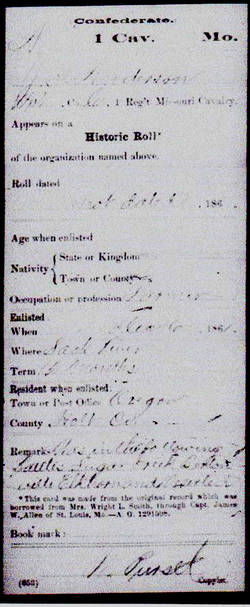 Confederate.
1 Cav. Mo.
Anderson
1 Reg't Missouri Cavalry.
Appears on a
Historic Roll*
of the organization named above.
Roll dated
Not dated, 186
Age when enlisted
Nativity { State or Kingdom
Town or County
Occupation or profession Farmer
Enlisted
When 186
Where Sack River
Term Months
Resident when enlisted:
Town or Post Office Oregon
County Holt Co
Remark: Was in the following
Battles Sugar Creek
Elkhorn and
*This card was made from the original record which was
borrowed from Mrs. Wright L. Smith, through Capt. James
W. Allen of St. Louis, Mo.—A. G. 1291502.
Book mark:
(653) Copyist.